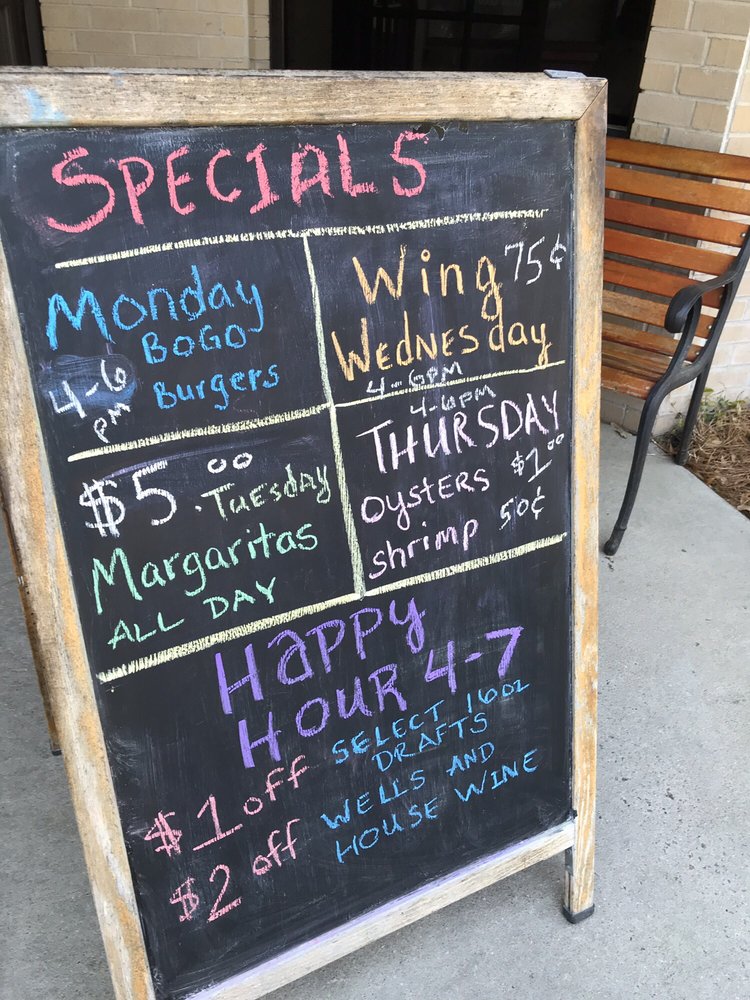 SPECIALS
Monday
BOGO
4-6
pm
Burgers
Wing 75¢
Wednesday
4-6pm
$5.00 Tuesday
Margaritas
ALL DAY
4-6pm
THURSDAY
oysters $1.00
shrimp 50¢
Happy
Hour 4-7
$1 off SELECT 16oz
DRAFTS
$2 off WELLS AND
HOUSE WINE